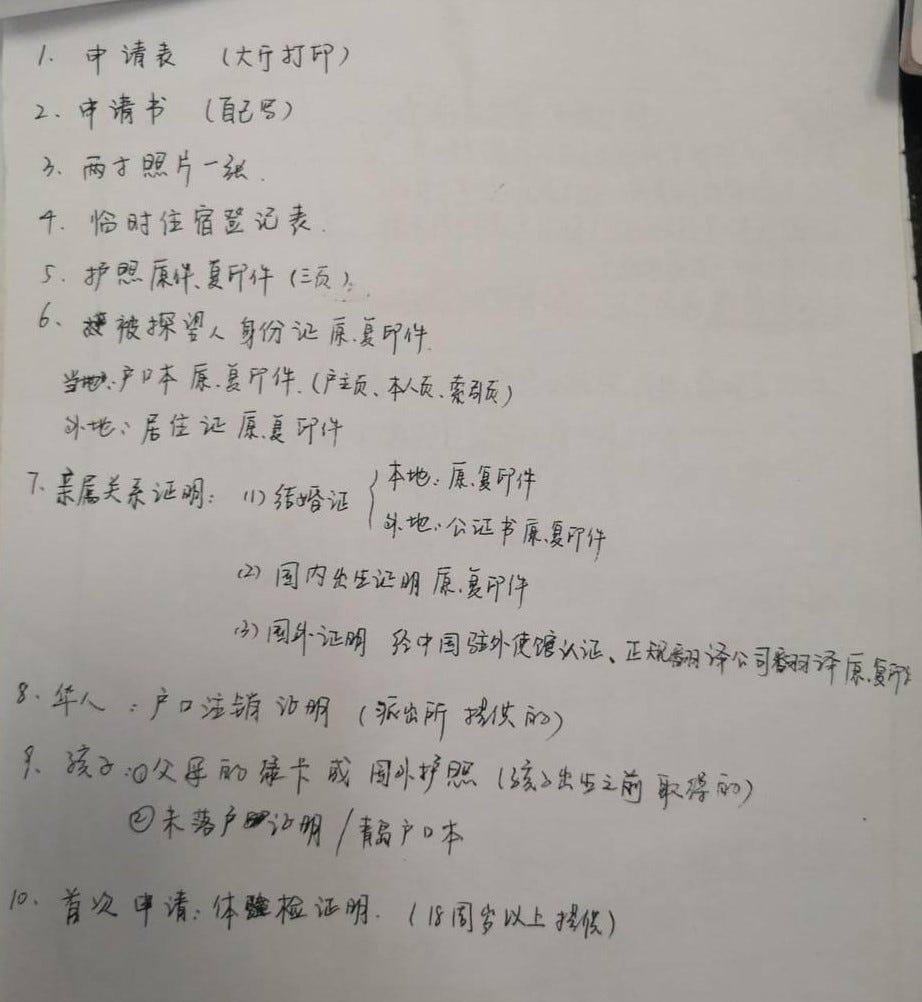 1. 申请表 (大厅打印)
2. 申请书 (自己写)
3. 两寸照片一张.
4. 临时住宿登记表.
5. 护照原件、复印件 (三页).
6. 被探望人身份证原、复印件.
当地: 户口本原、复印件. (户主页、本人页、索引页)
外地: 居住证原、复印件
7. 亲属关系证明: (1) 结婚证 { 本地: 原、复印件
外地: 公证书原、复印件
(2) 国内出生证明原、复印件
(3) 国外证明 经中国驻外使馆认证、正规翻译公司翻译原、复印件
8. 华人: 户口注销证明 (派出所提供的)
9. 孩子: ①父母的绿卡或国外护照 (孩子出生之前取得的)
②未落户证明 / 青岛户口本
10. 首次申请: 体检证明. (18周岁以上提供)